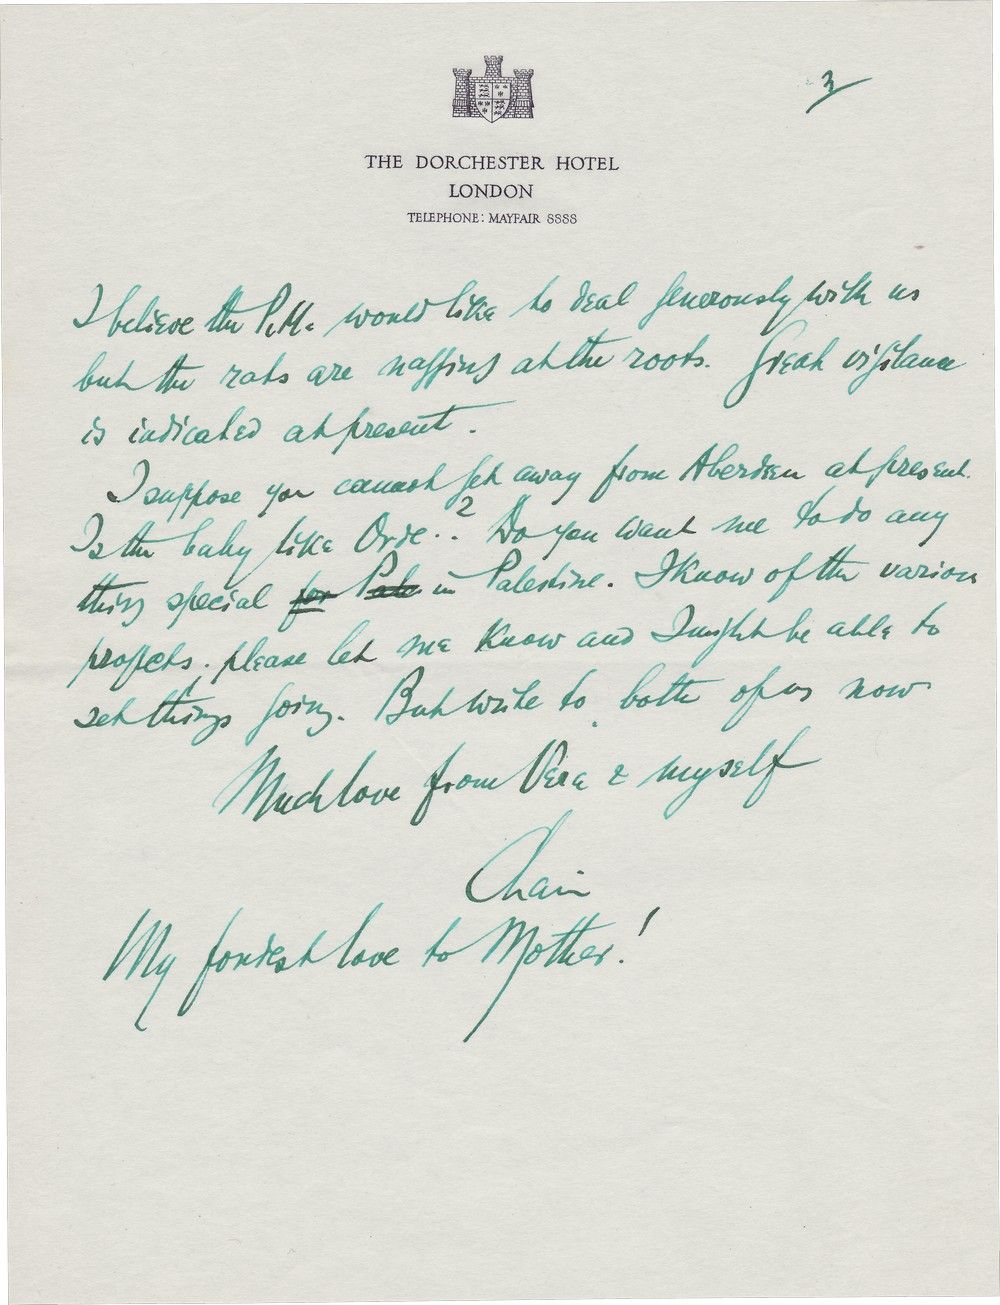 3
THE DORCHESTER HOTEL
LONDON
TELEPHONE: MAYFAIR 8888
I believe the P.M. would like to deal generously with us
but the rats are naffing at the roots. Great vigilance
is indicated at present.
I suppose you cannot get away from Aberdeen at present.
Is the baby like Orde..? Do you want me to do any
thing special for Pale in Palestine. I know of the various
projects, please let me know and I might be able to
set things going. But write to both of us now
Much love from Vera & myself
Chaim
My fondest love to Mother!